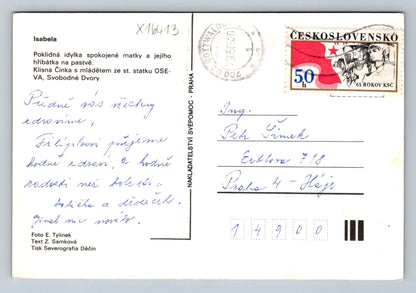 X16413
Isabela
Poklidná idylka spokojené matky a jejího
hříbátka na pastvě.
Klisna Činka s mládětem ze st. statku OSE-
VA, Svobodné Dvory
Předně vás všechny
zdravíme,
Filípkovi přejeme
hodně zdraví, a hodně
radosti než bolesti.
babička a dědeček.
Jinak nic nového.
Foto E. Tylinek
Text Z. Samková
Tisk Severografia Děčín
NAKLADATELSTVÍ SVÉPOMOC - PRAHA
GOTTWALDOV
ČESKOSLOVENSKO
50 h
65 ROKOV KSČ
Ing.
Petr Šimek
718
Praha 4 - Háje
14900